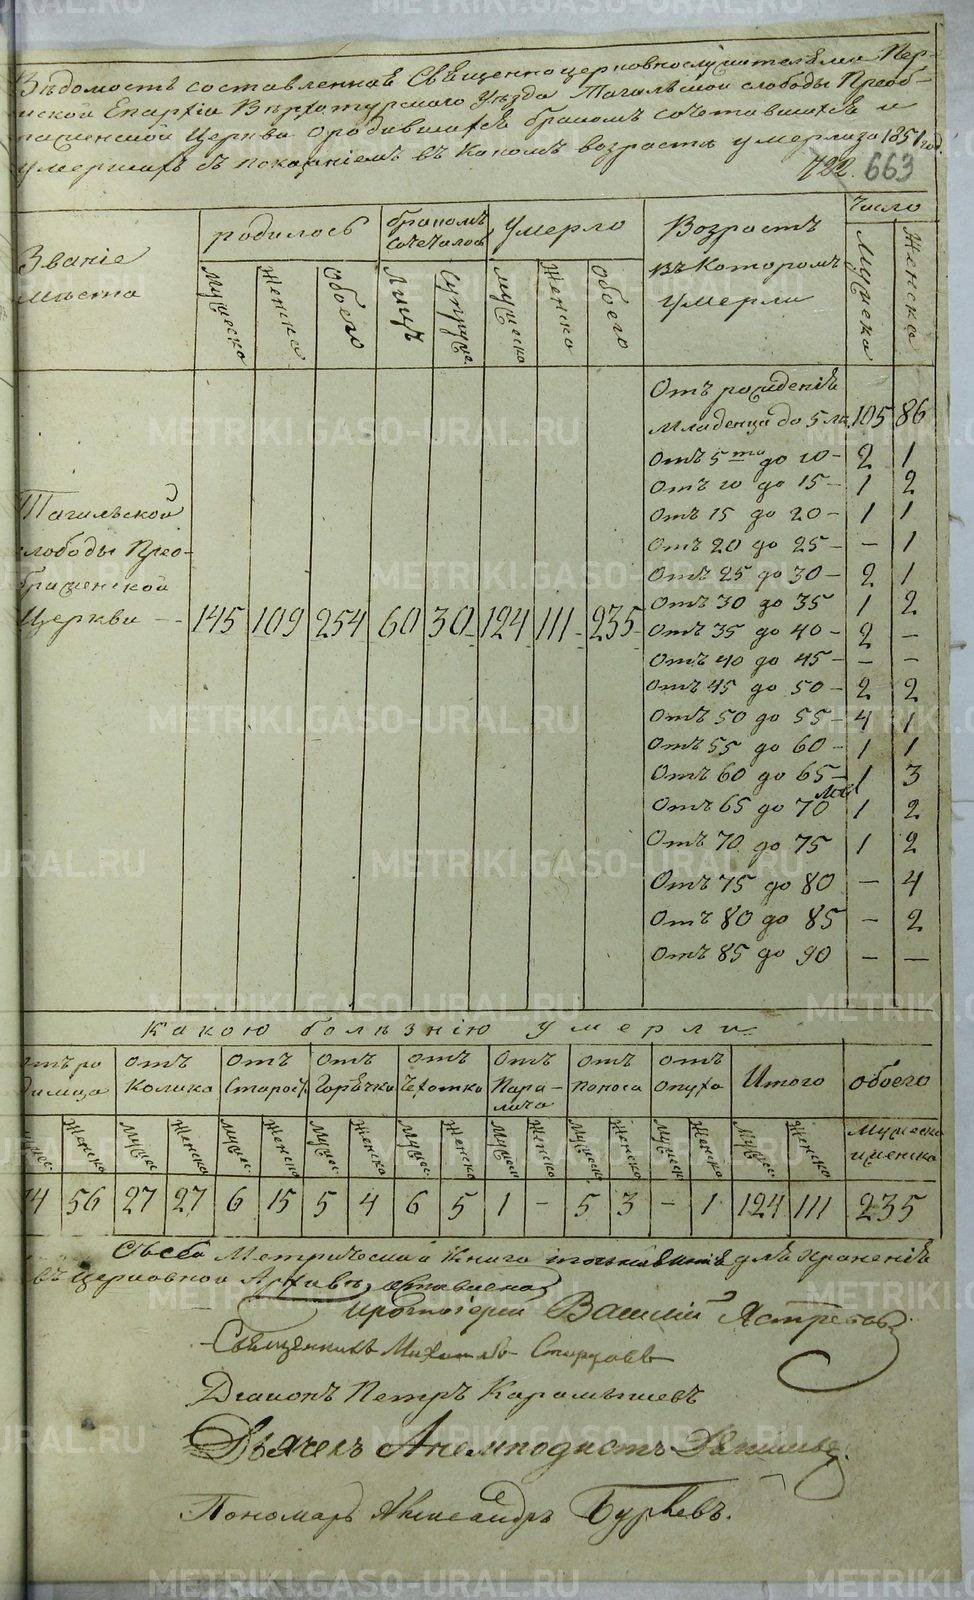 Вѣдомость составленная Священноцерковнослужителями Пер-
мской Епархіи Верхотурскаго Уѣзда Тагильской слободы Преоб-
раженской Церкви о родившихся бракомъ сочетавшихся и
умершихъ съ показаніемъ въ какомъ возрастѣ умерли за 1851 год.
722. 663
Званіе мѣста
родилось
бракомъ сочеталось
умерло
Возрастъ въ которомъ умерли
число
Мужеска Женска Обоего Лицъ Супруж. мужеска Женска Обоего Мужеска Женска
Отъ рожденія
Младенца до 5 лѣ. 105 86
Отъ 5ти до 10 - 2 1
Отъ 10 до 15 - 1 2
Отъ 15 до 20 - 1 1
Отъ 20 до 25 - - 1
Отъ 25 до 30 - 2 1
Отъ 30 до 35 1 2
Отъ 35 до 40 - 2 -
Отъ 40 до 45 - - -
Отъ 45 до 50 - 2 2
Отъ 50 до 55 - 4 1
Отъ 55 до 60 - 1 1
Отъ 60 до 65 - 1 3
Отъ 65 до 70 1 2
Отъ 70 до 75 1 2
Отъ 75 до 80 - 4
Отъ 80 до 85 - 2
Отъ 85 до 90 - -
Тагильской
слободы Прео-
браженской
Церкви - - 145 109 254 60 30 124 111 235
Какою болѣзнію умерли
Отъ ро
димца
Отъ Колика
Отъ Старости
Отъ Горячка
Отъ Чехотка
Отъ Пара-
лича
Отъ поноса
Отъ опуха
Итого
обоего
Мужес. Женска Мужес. Женска Мужес. Женска Мужес. Женска Мужес. Женска Мужеск Женска Мужеска Женска Мужеск Женска Мужес. Женска Мужеска и женска
74 56 27 27 6 15 5 4 6 5 1 - 5 3 - 1 124 111 235
Съ сей Метрической Книги для храненія
въ церковной Архивѣ оставлена
Протоіерей Василій Ястребовъ
Священникъ Михаилъ
Діаконъ Петръ Карамышевъ
Дьячекъ Анемподистъ
Пономарь Александръ
METRIKI.GASO-URAL.RU